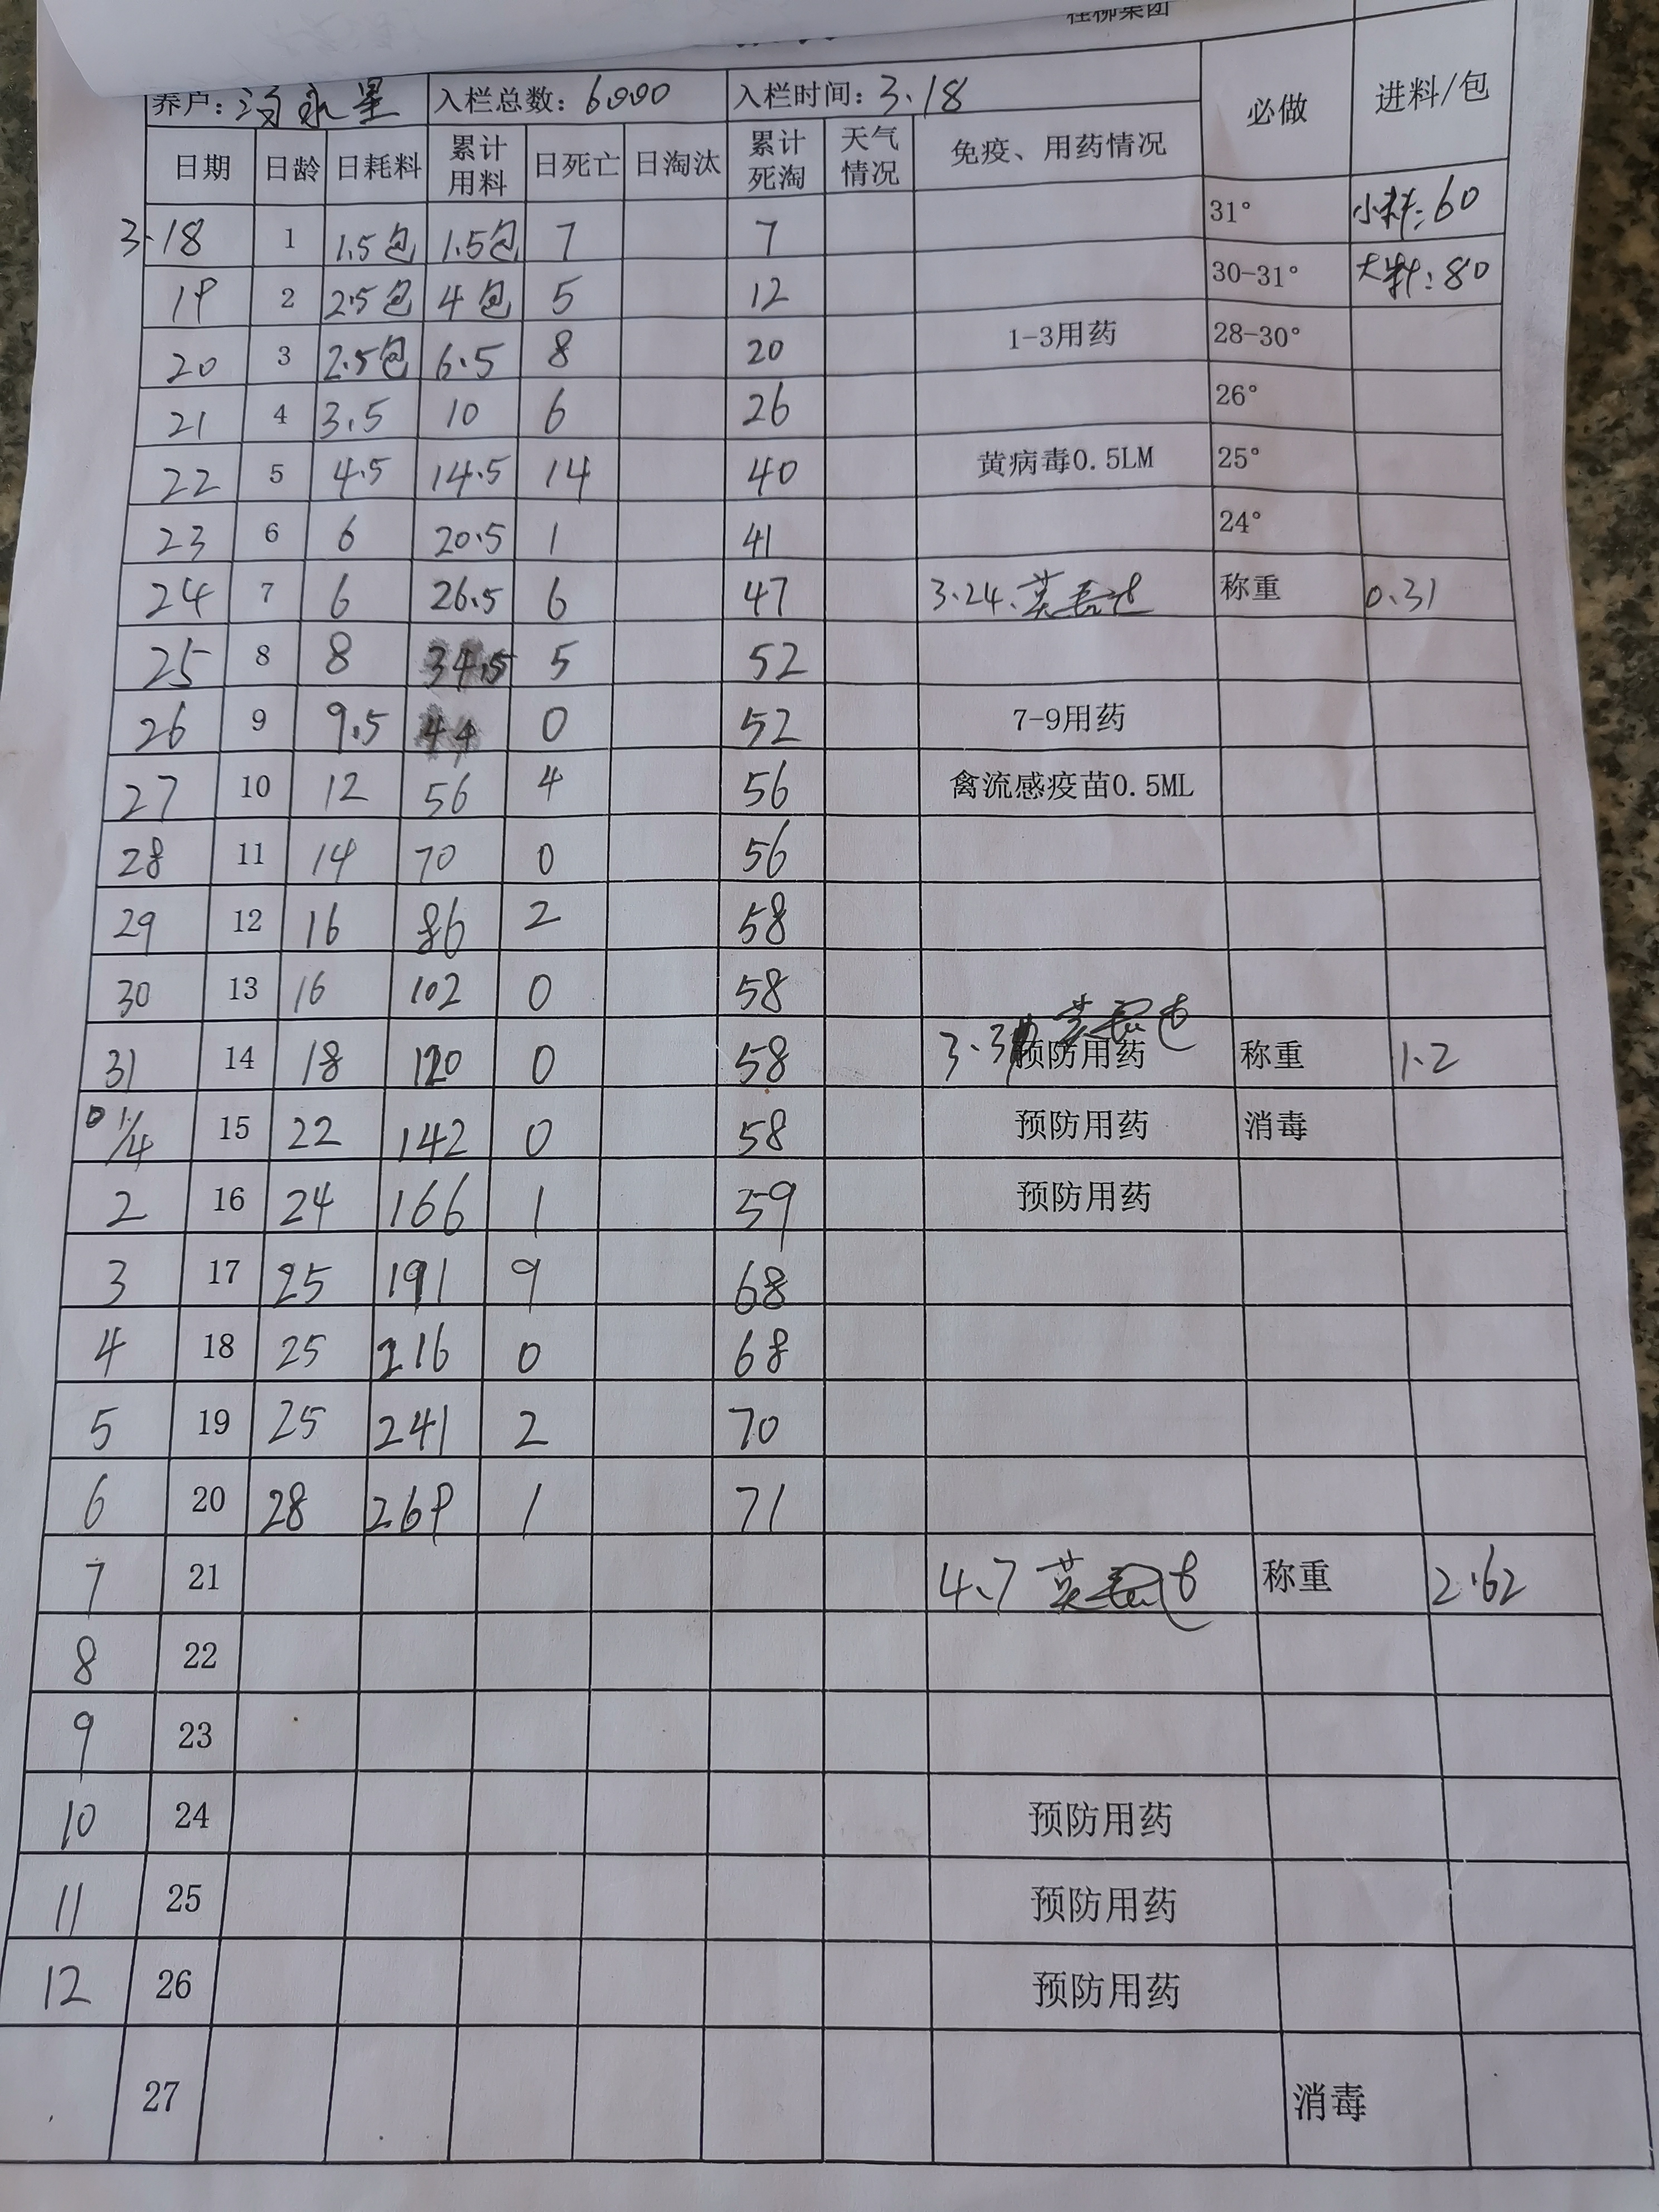 桂柳集团
养户：冯永星 入栏总数：6000 入栏时间：3.18 必做 进料/包
日期 日龄 日耗料 累计用料 日死亡 日淘汰 累计死淘 天气情况 免疫、用药情况
3.18 1 1.5包 1.5包 7 7 31° 小料：60
19 2 2.5包 4包 5 12 30-31° 大料：80
20 3 2.5包 6.5 8 20 1-3用药 28-30°
21 4 3.5 10 6 26 26°
22 5 4.5 14.5 14 40 黄病毒0.5LM 25°
23 6 6 20.5 1 41 24°
24 7 6 26.5 6 47 3.24. 称重 0.31
25 8 8 34.5 5 52
26 9 9.5 44 0 52 7-9用药
27 10 12 56 4 56 禽流感疫苗0.5ML
28 11 14 70 0 56
29 12 16 86 2 58
30 13 16 102 0 58
31 14 18 120 0 58 预防用药 称重 1.2
1/4 15 22 142 0 58 预防用药 消毒
2 16 24 166 1 59 预防用药
3 17 25 191 9 68
4 18 25 216 0 68
5 19 25 241 2 70
6 20 28 269 1 71
7 21 4.7 称重 2.62
8 22
9 23
10 24 预防用药
11 25 预防用药
12 26 预防用药
27 消毒